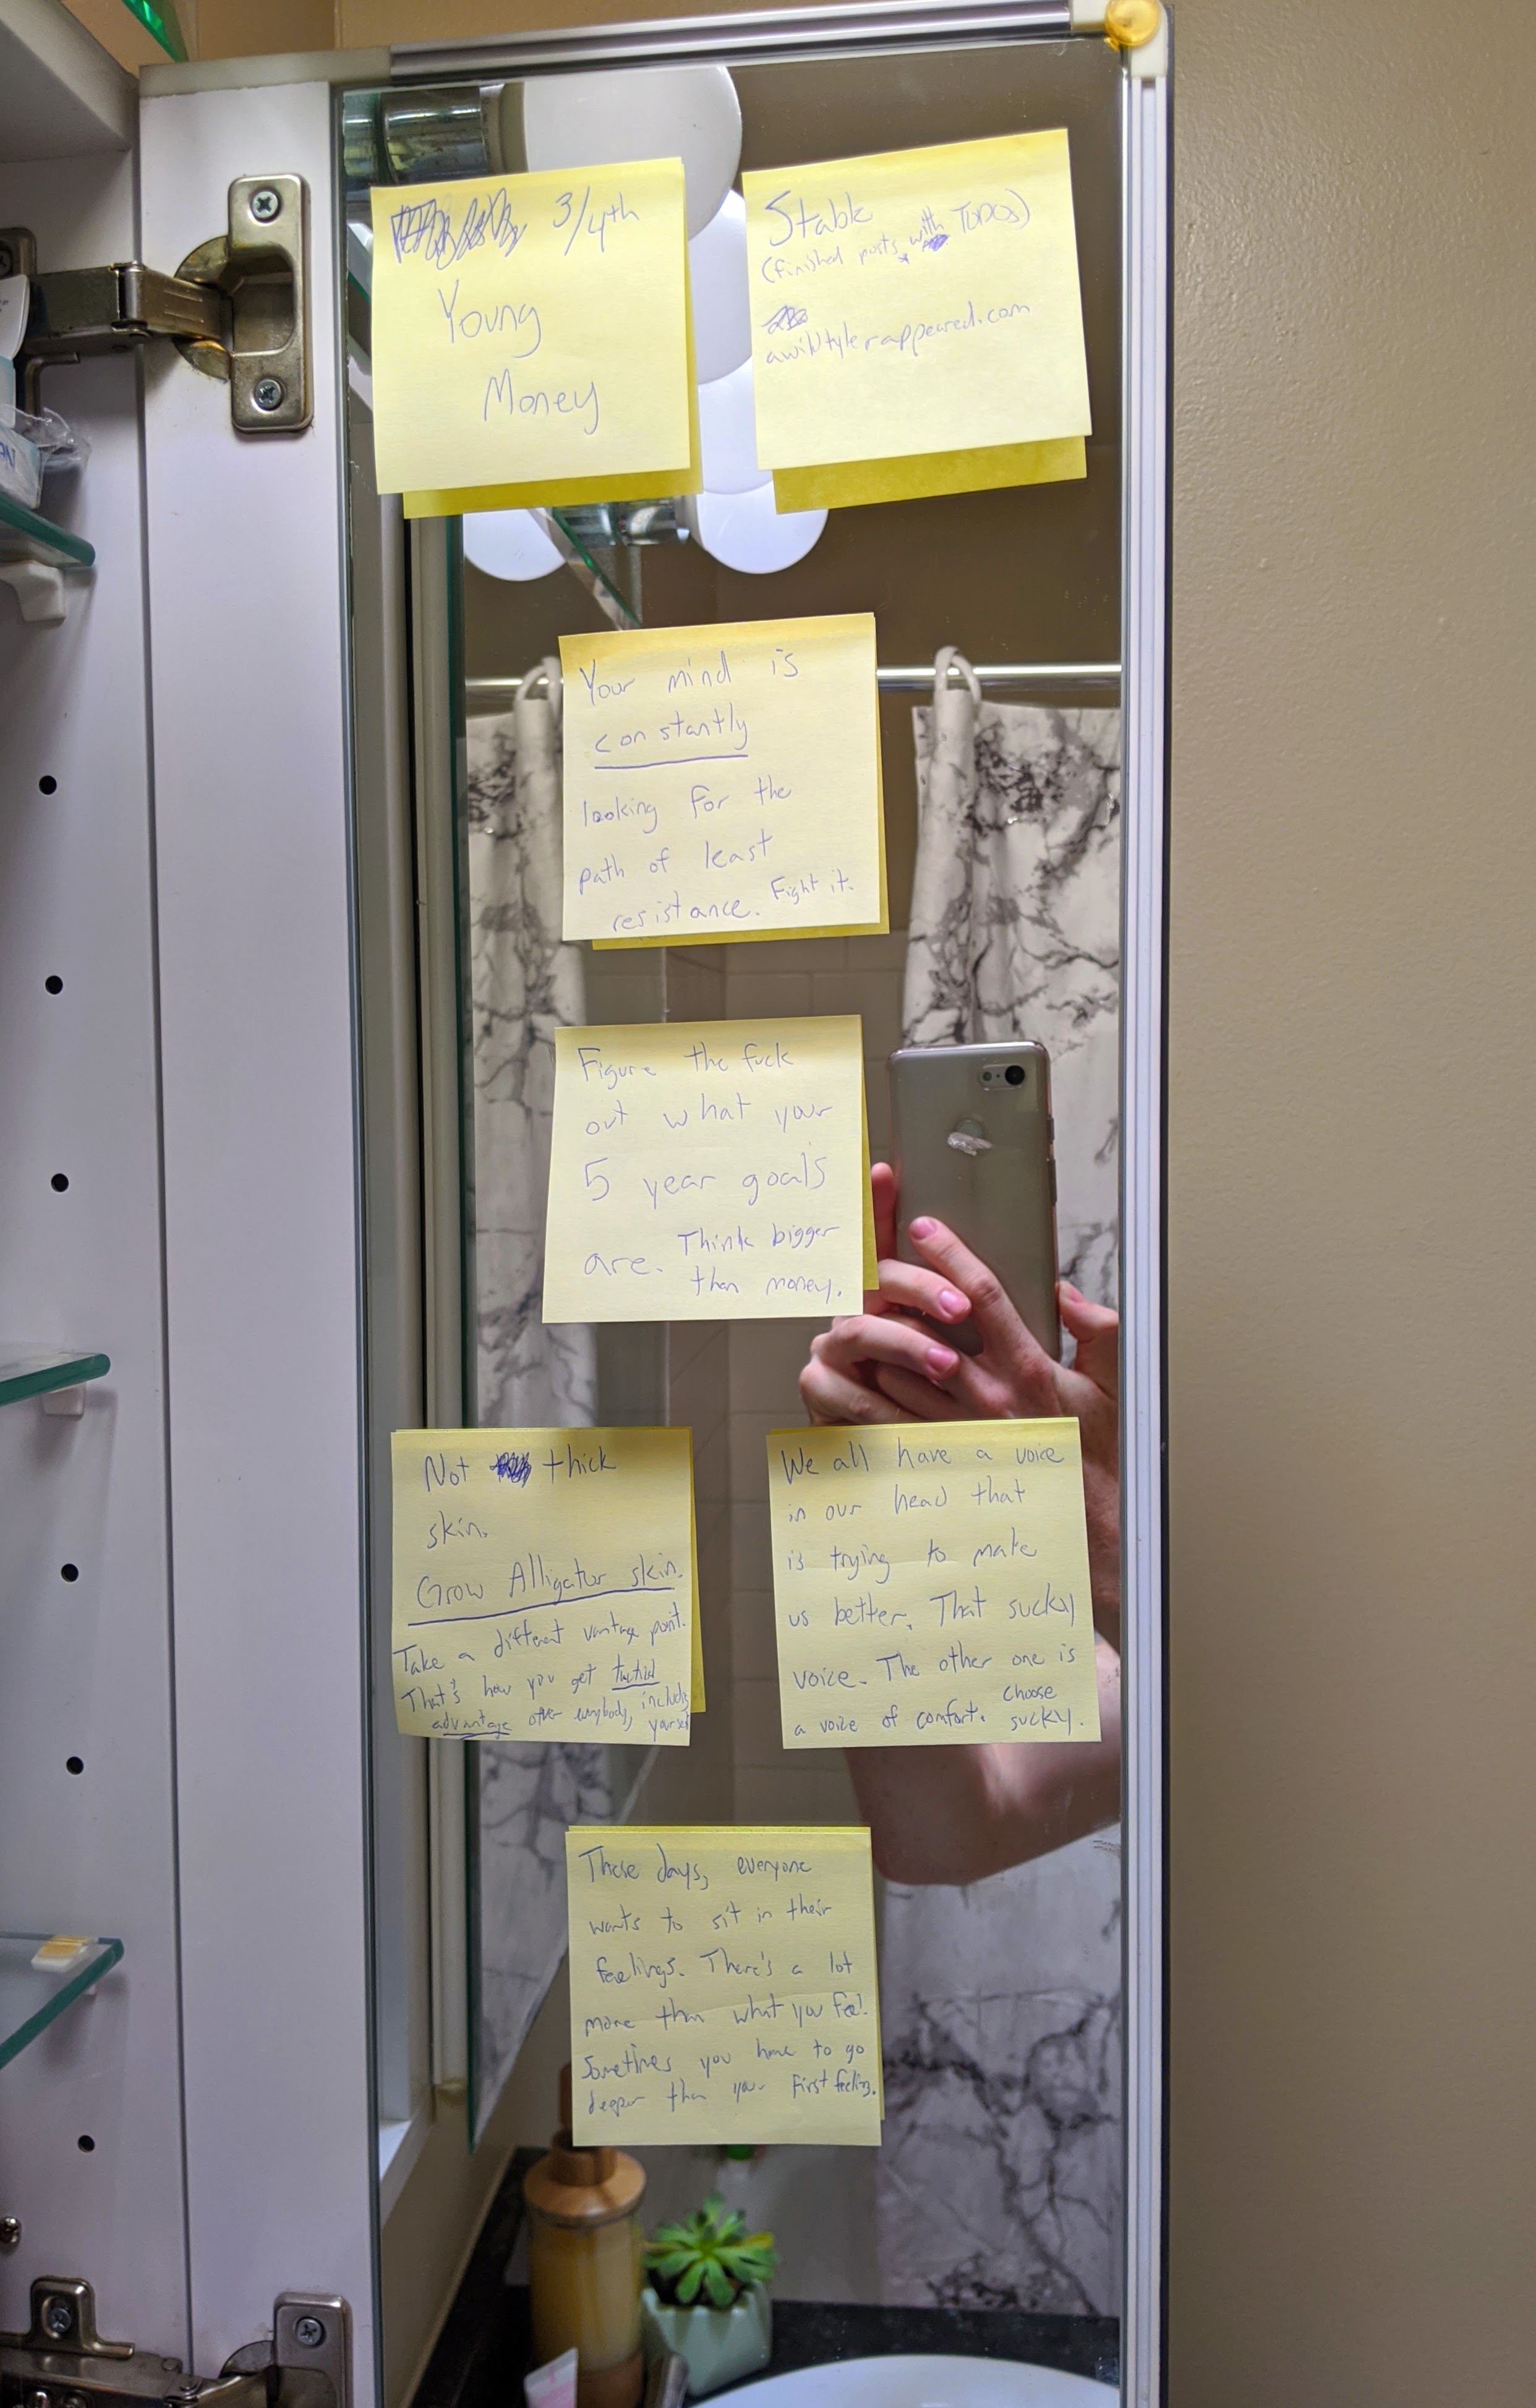 3/4th
Young
Money
Stable
(finished posts with TODOs)
awildtylerappeared.com
Your mind is
constantly
looking for the
path of least
resistance. Fight it.
Figure the fuck
out what your
5 year goals
are. Think bigger
than money.
Not thick
skin.
Grow Alligator skin.
Take a different vantage point.
That's how you get tactical
advantage over everybody, including
yourself
We all have a voice
in our head that
is trying to make
us better. That sucky
voice. The other one is
a voice of comfort. Choose
sucky.
These days, everyone
wants to sit in their
feelings. There's a lot
more than what you feel.
Sometimes you have to go
deeper than your first feeling.